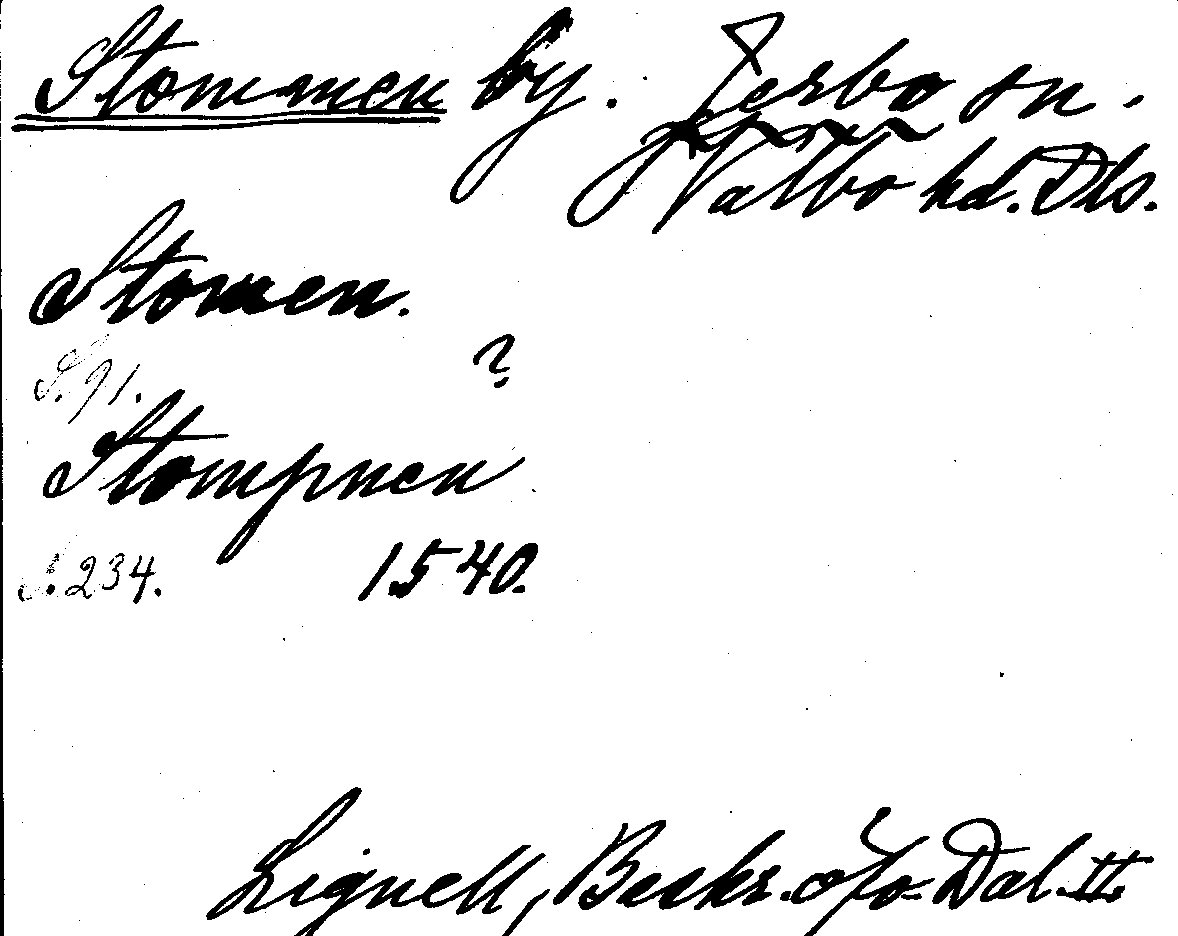 Stommen by. Jerbo sn.
Valbo hd. Dls.
Stomen.
S. 91. ?
Stompnen
S. 234. 1540.
Lignell, Beskr. öfv. Dal. II.